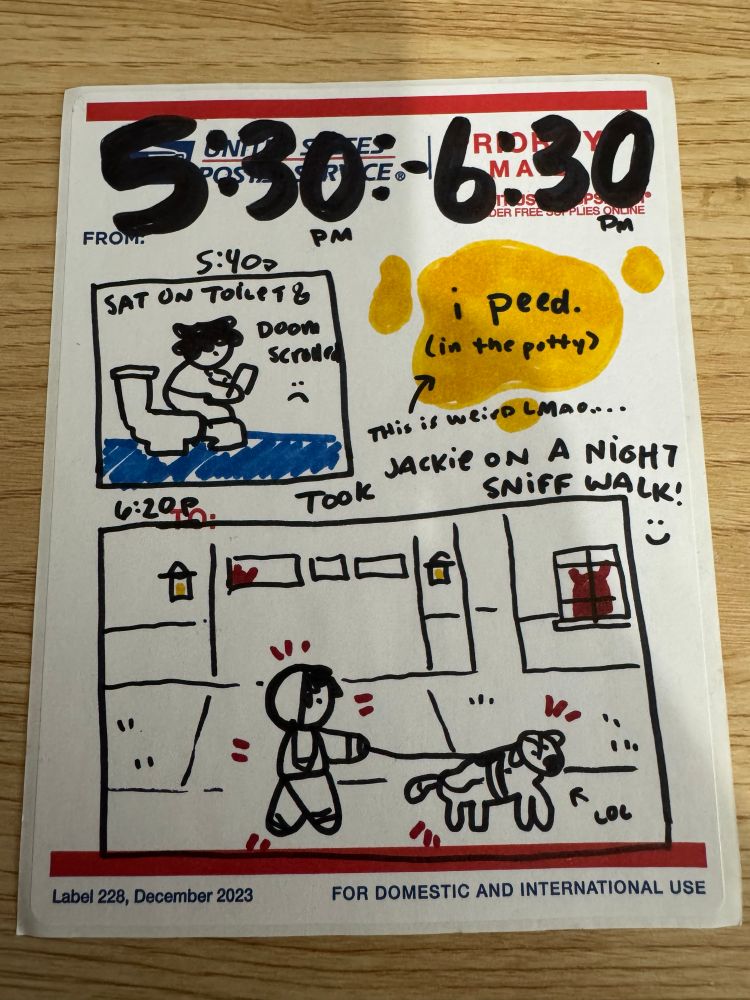 5:30 - 6:30
PM PM
UNITED STATES
POSTAL SERVICE®
PRIORITY
MAIL
ORDER FREE SUPPLIES ONLINE
FROM:
5:40p
SAT ON TOILET &
DOOM
SCROLLED
:(
i peed.
(in the potty)
THIS IS WEIRD LMAO....
6:20p
TO:
TOOK JACKIE ON A NIGHT
SNIFF WALK!
:)
LOG
Label 228, December 2023
FOR DOMESTIC AND INTERNATIONAL USE